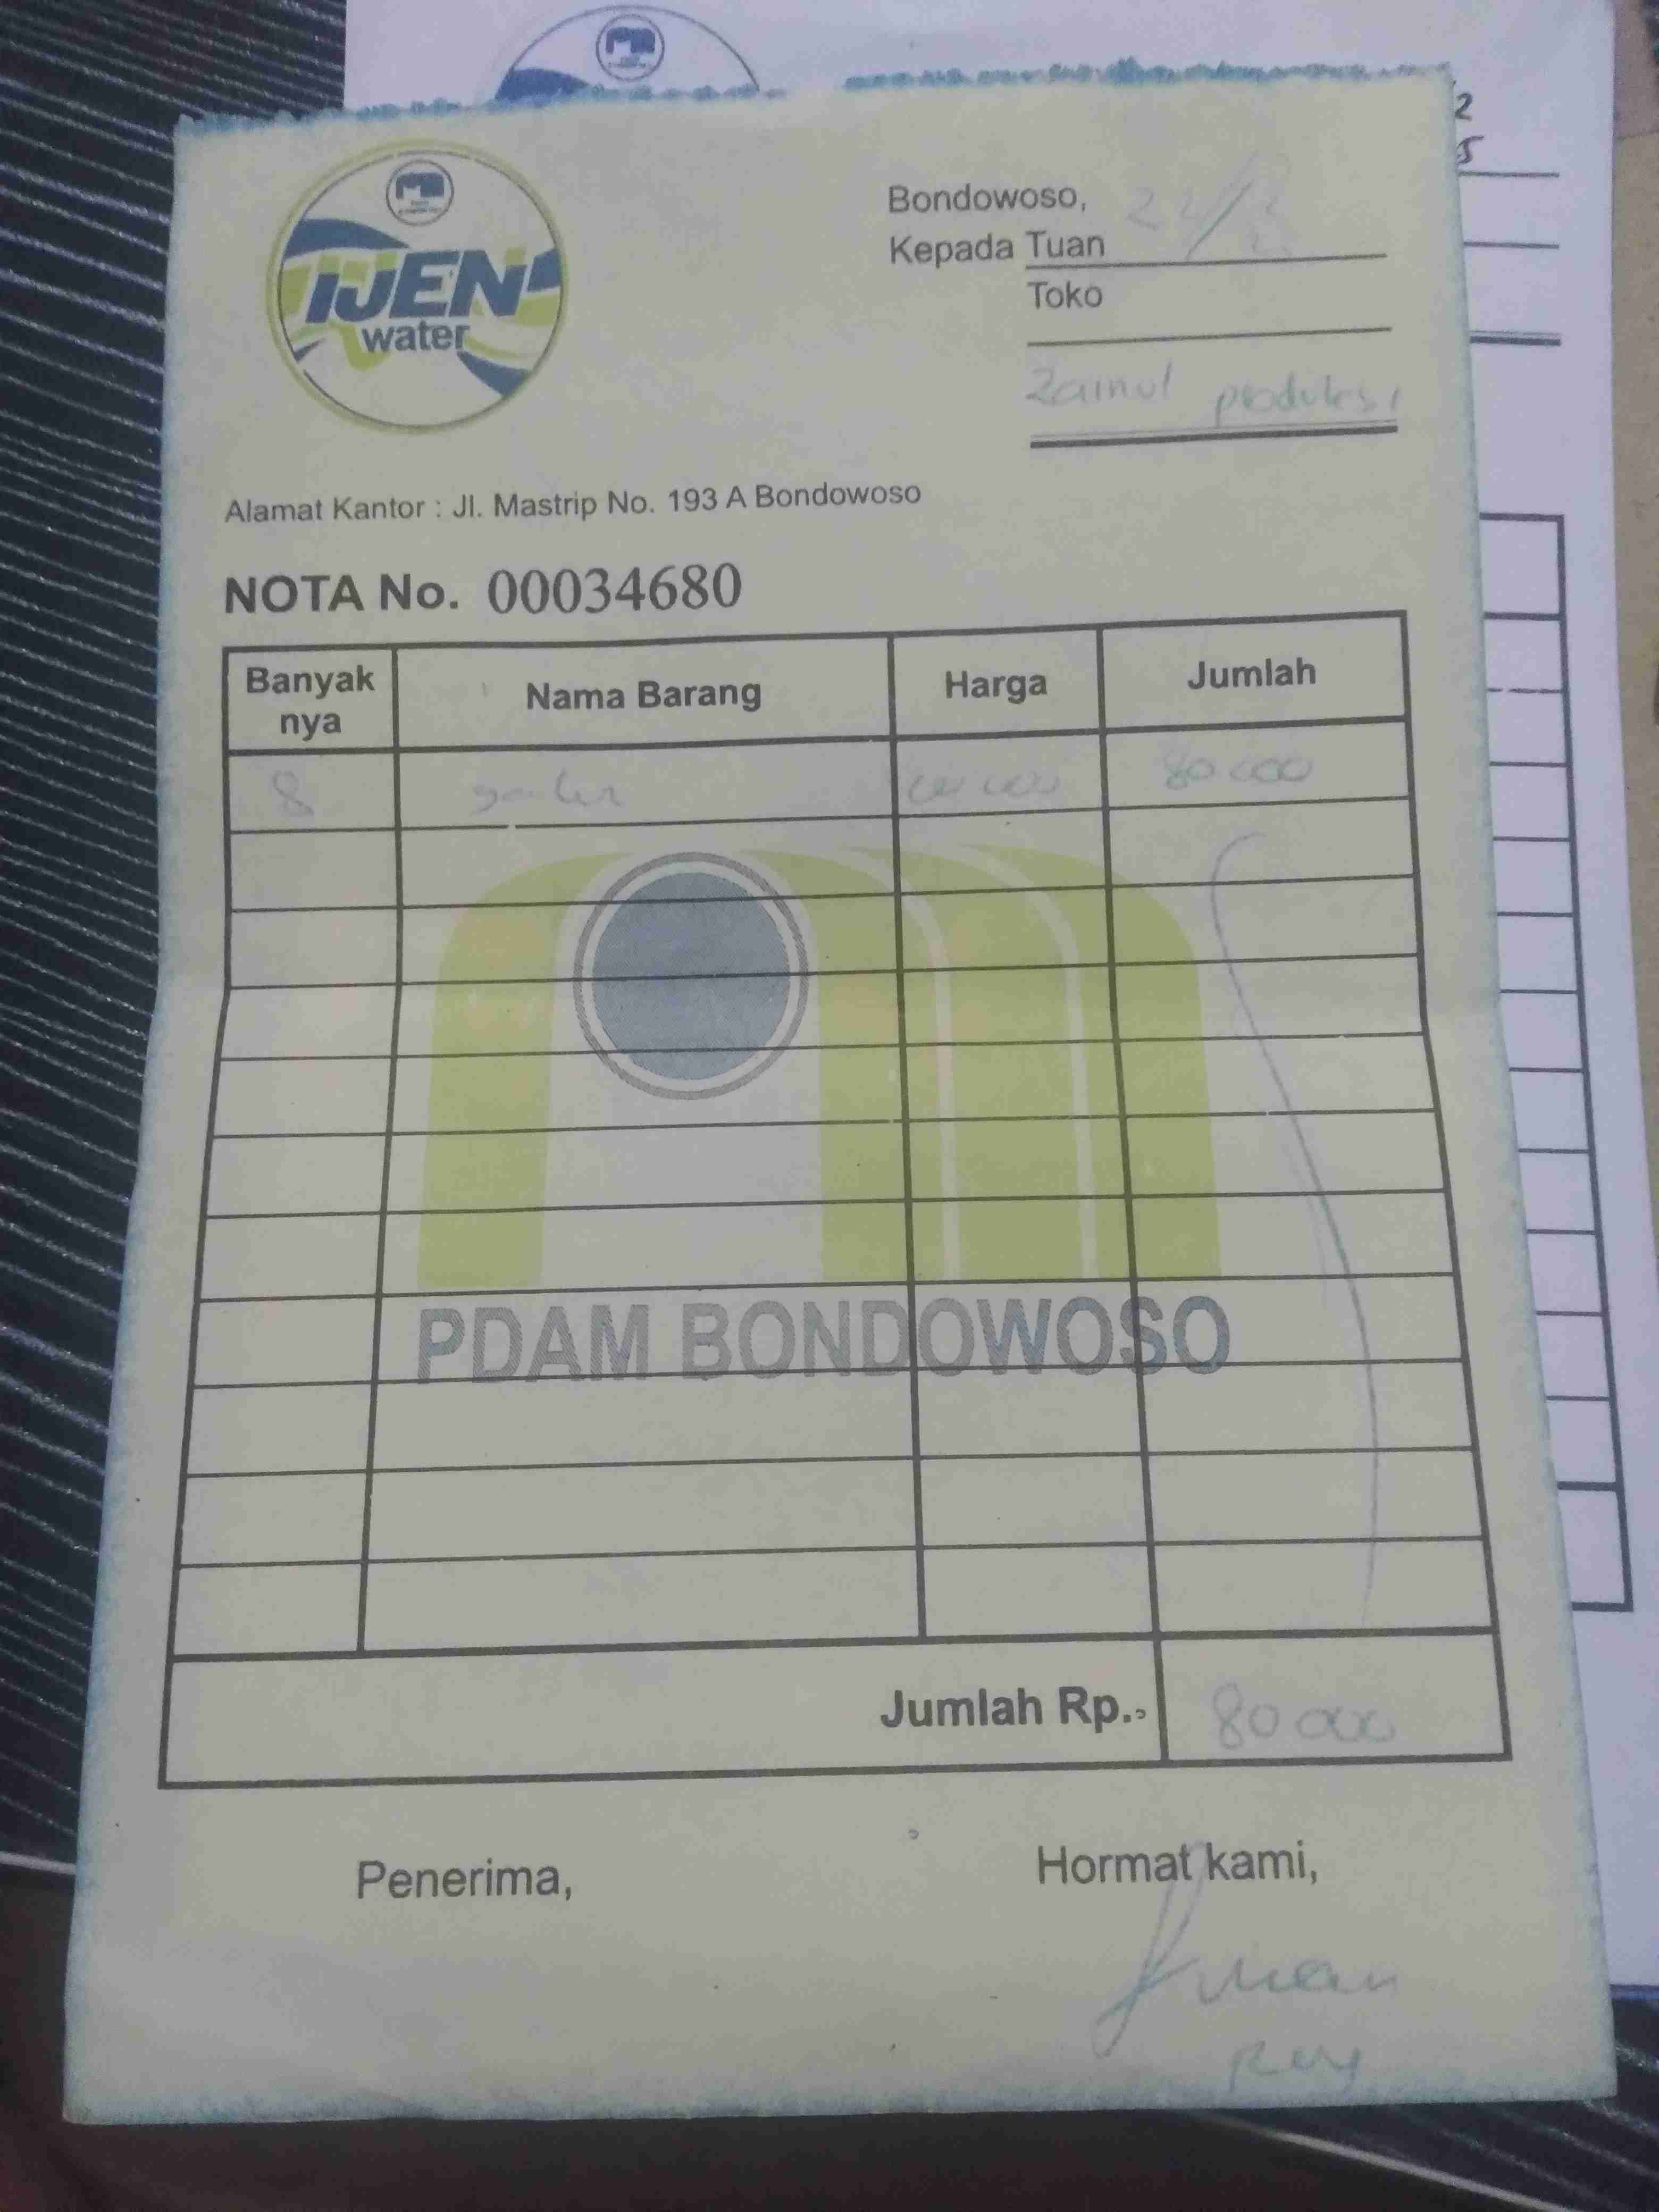 IJEN
water
Bondowoso, 22/
Kepada Tuan
Toko
Zainul produksi
Alamat Kantor : Jl. Mastrip No. 193 A Bondowoso
NOTA No. 00034680
Banyak nya Nama Barang Harga Jumlah
8 80.000
PDAM BONDOWOSO
Jumlah Rp. 80 000
Penerima, Hormat kami,